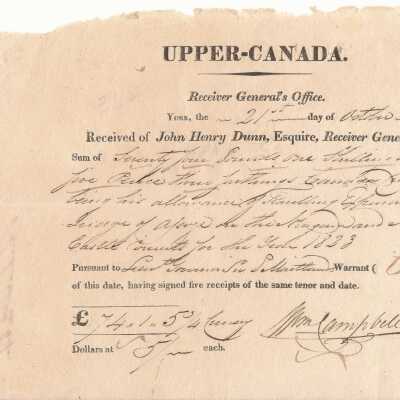 UPPER-CANADA.
Receiver General's Office.
YORK, the 21st day of Octobe
Received of John Henry Dunn, Esquire, Receiver Gene
Sum of Seventy four Pounds one Shilling
five Pence three farthings
being his allowance of Travelling Expen
Judge of Assize on the and
Circuits for the Year 1823
Pursuant to Lieut Governor Sir P Maitlands Warrant (
of this date, having signed five receipts of the same tenor and date.
£ 74 1 5 3/4 Curcy
Dollars at 5/ each.
Wm Campbell